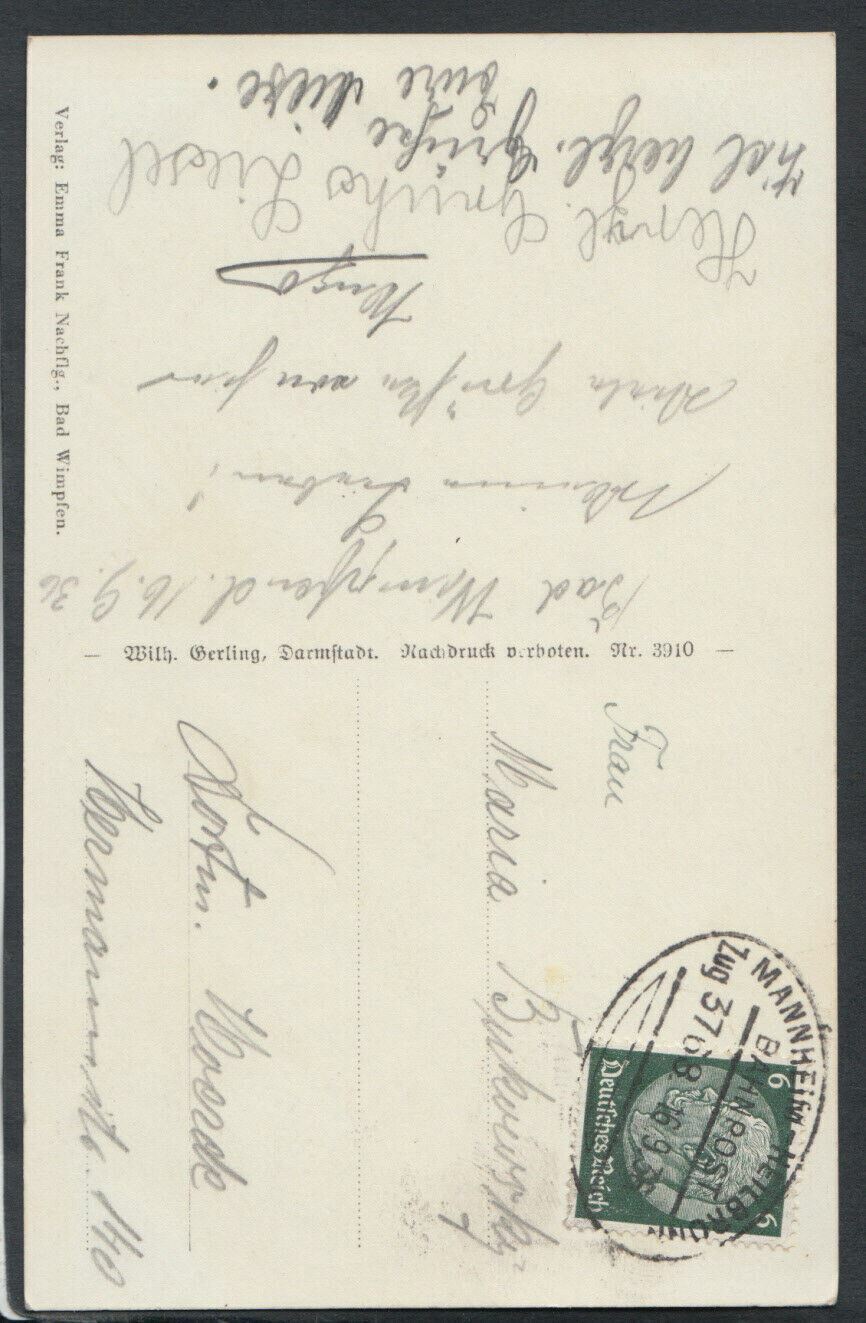 Bad Wimpfen d. 16.9.36
Meine Lieben!
Viele Grüßen von hier
Hugo
Herzl. Grüße Liesel
Viel herzl. Grüße
Eure Liese.
Verlag: Emma Frank Nachflg., Bad Wimpfen.
— Wilh. Gerling, Darmstadt. Nachdruck verboten. Nr. 3910 —
Frau
Maria Bukowsky
Dortm. Hoerde
Hermannstr. 140
MANNHEIM-HEILBRONN
BAHNPOST
Zug 3768 16.9.36
6 6
Deutsches Reich